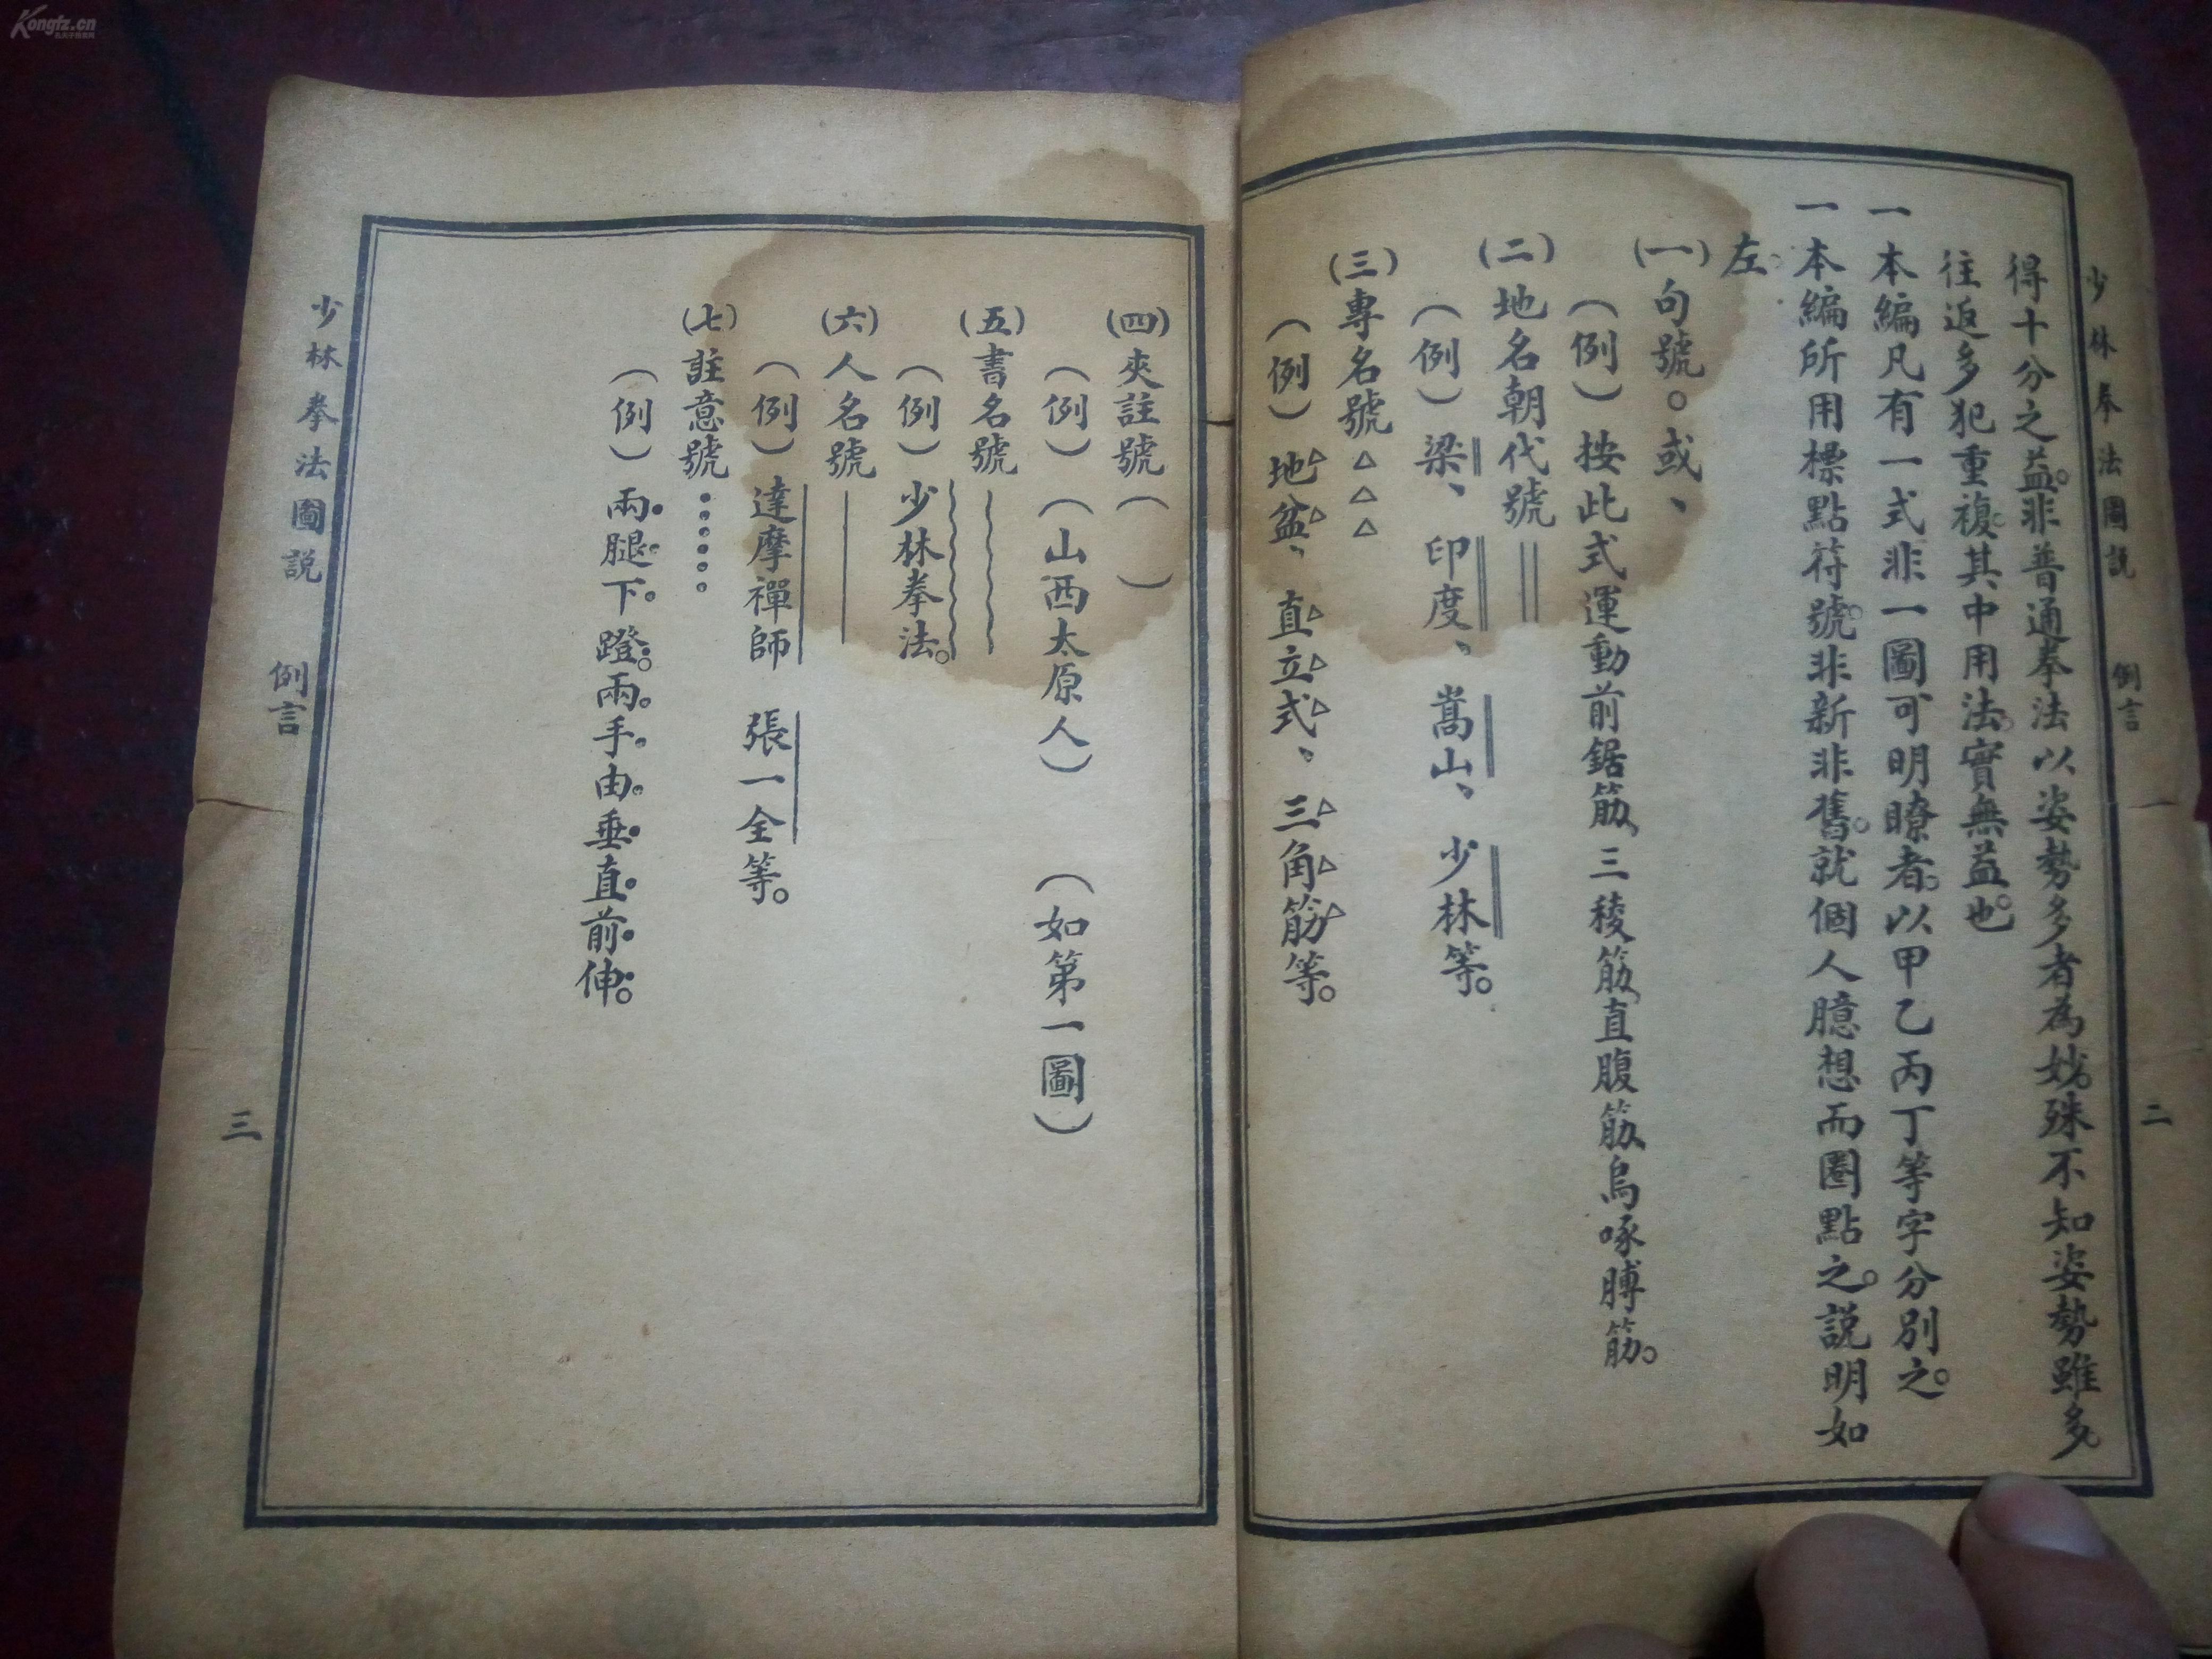 少林拳法圖説 例言 二
得十分之益。非普通拳法以姿勢多者為妙。殊不知姿勢雖多
往返多犯重複。其中用法。實無益也。
一本編凡有一式非一圖可明瞭者。以甲乙丙丁等字分別之。
一本編所用標點符號。非新非舊。就個人臆想而圈點之。説明如
左。
(一)句號。或、
(例)按此式運動前鋸筋、三稜筋、直腹筋、烏啄膊筋。
(二)地名朝代號||
(例)梁、印度、嵩山、少林等。
(三)專名號△△△
(例)地盆、直立式、三角筋等。
(四)夾註號( )
(例)(山西太原人) (如第一圖)
(五)書名號﹏﹏
(例)少林拳法。
(六)人名號|
(例)達摩禪師 張一全等。
(七)註意號•••••
(例)兩腿下蹬。兩手由垂直前伸。
少林拳法圖説 例言 三
Kongfz.cn